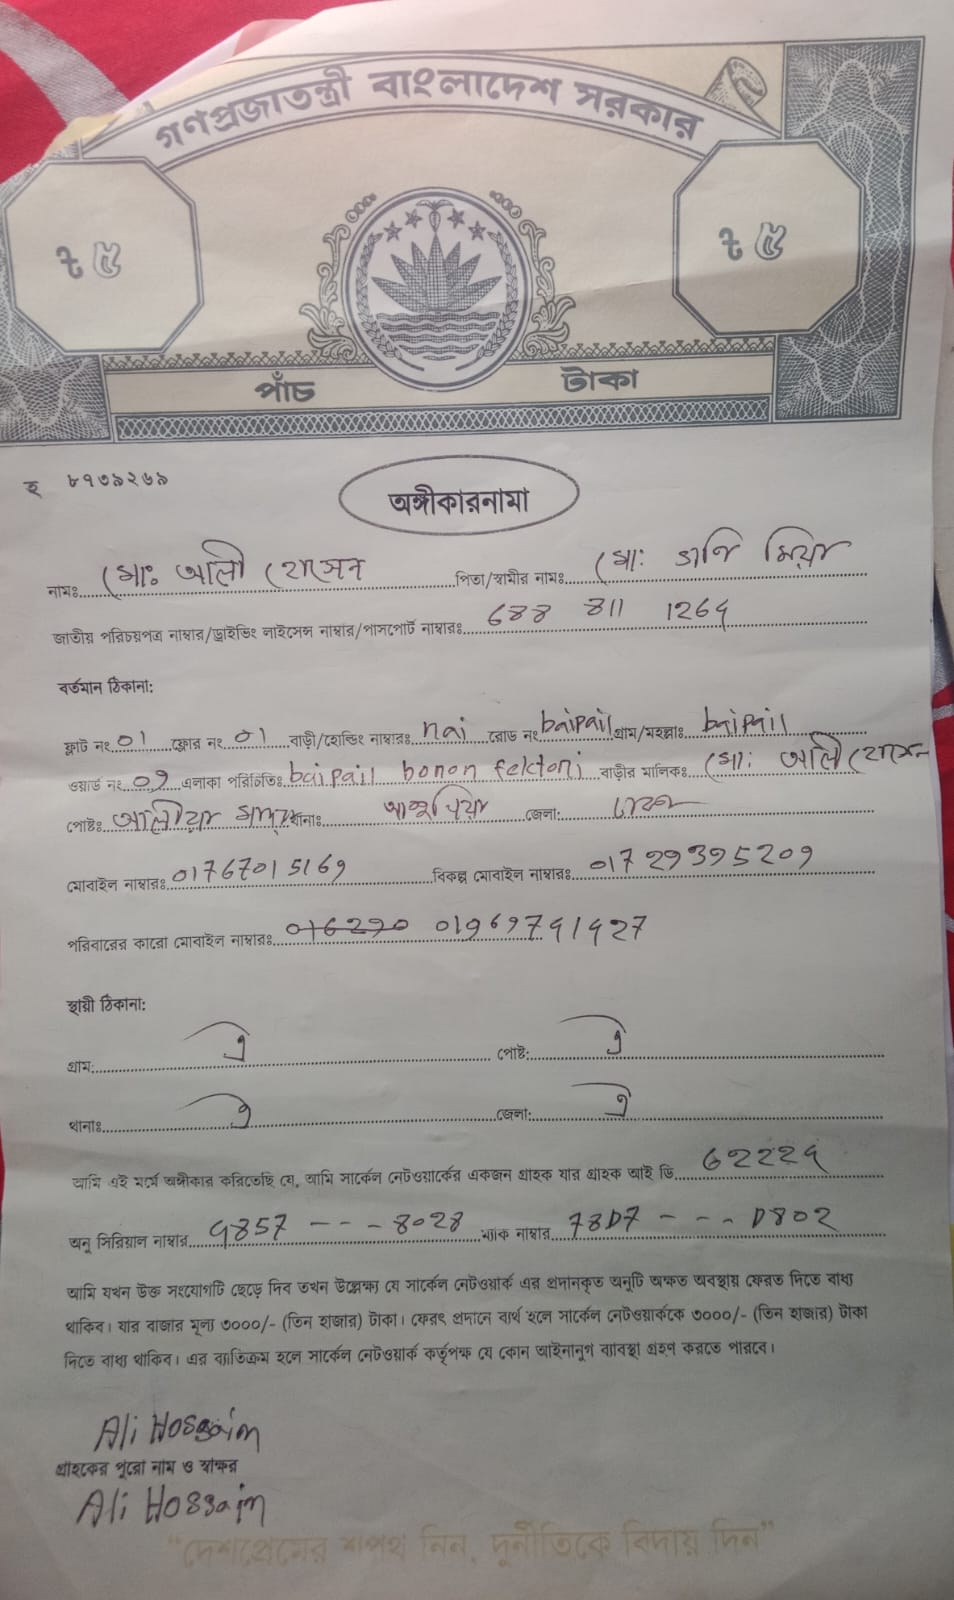 গণপ্রজাতন্ত্রী বাংলাদেশ সরকার
৳ ৫ ৳ ৫
পাঁচ টাকা
হ ৮৭৩৯২৬৯
অঙ্গীকারনামা
নামঃ মোঃ আলী হোসেন পিতা/স্বামীর নামঃ মোঃ মিয়া
জাতীয় পরিচয়পত্র নাম্বার/ড্রাইভিং লাইসেন্স নাম্বার/পাসপোর্ট নাম্বারঃ
বর্তমান ঠিকানা:
ফ্লাট নং 01 ফ্লোর নং 01 বাড়ী/হোল্ডিং নাম্বারঃ nai রোড নং baipail গ্রাম/মহল্লাঃ baipail
ওয়ার্ড নং এলাকা পরিচিতিঃ baipail bonon fektori বাড়ীর মালিকঃ মো: আলি হোসেন
পোষ্টঃ আলীয়া থানাঃ আশুলিয়া জেলা: ঢাকা
মোবাইল নাম্বারঃ 01767015169 বিকল্প মোবাইল নাম্বারঃ 01729395209
পরিবারের কারো মোবাইল নাম্বারঃ
স্থায়ী ঠিকানা:
গ্রাম: ঐ পোষ্ট: ঐ
থানাঃ ঐ জেলা: ঐ
আমি এই মর্মে অঙ্গীকার করিতেছি যে, আমি সার্কেল নেটওয়ার্কের একজন গ্রাহক যার গ্রাহক আই ডি
অনু সিরিয়াল নাম্বার ম্যাক নাম্বার
আমি যখন উক্ত সংযোগটি ছেড়ে দিব তখন উল্লেক্ষ্য যে সার্কেল নেটওয়ার্ক এর প্রদানকৃত অনুটি অক্ষত অবস্থায় ফেরত দিতে বাধ্য
থাকিব। যার বাজার মূল্য ৩০০০/- (তিন হাজার) টাকা। ফেরৎ প্রদানে ব্যর্থ হলে সার্কেল নেটওয়ার্ককে ৩০০০/- (তিন হাজার) টাকা
দিতে বাধ্য থাকিব। এর ব্যতিক্রম হলে সার্কেল নেটওয়ার্ক কর্তৃপক্ষ যে কোন আইনানুগ ব্যাবস্থা গ্রহণ করতে পারবে।
Ali Hossain
গ্রাহকের পুরো নাম ও স্বাক্ষর
Ali Hossain
"দেশপ্রেমের শপথ নিন, দুর্নীতিকে বিদায় দিন"